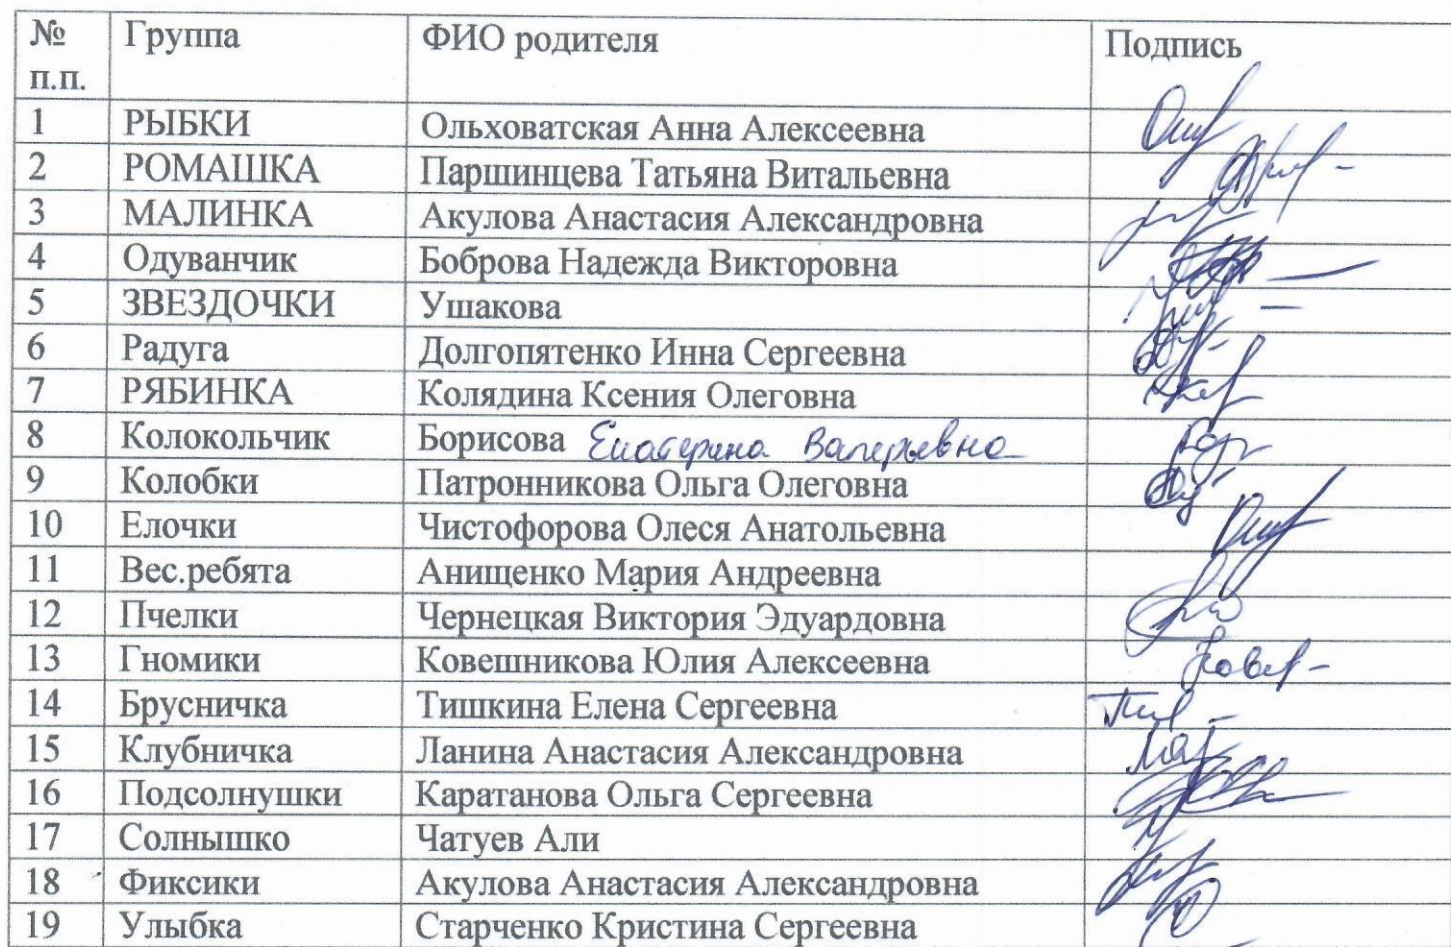 № п.п. Группа ФИО родителя Подпись
1 РЫБКИ Ольховатская Анна Алексеевна
2 РОМАШКА Паршинцева Татьяна Витальевна
3 МАЛИНКА Акулова Анастасия Александровна
4 Одуванчик Боброва Надежда Викторовна
5 ЗВЕЗДОЧКИ Ушакова
6 Радуга Долгопятенко Инна Сергеевна
7 РЯБИНКА Колядина Ксения Олеговна
8 Колокольчик Борисова Екатерина Валерьевна
9 Колобки Патронникова Ольга Олеговна
10 Елочки Чистофорова Олеся Анатольевна
11 Вес.ребята Анищенко Мария Андреевна
12 Пчелки Чернецкая Виктория Эдуардовна
13 Гномики Ковешникова Юлия Алексеевна
14 Брусничка Тишкина Елена Сергеевна
15 Клубничка Ланина Анастасия Александровна
16 Подсолнушки Каратанова Ольга Сергеевна
17 Солнышко Чатуев Али
18 Фиксики Акулова Анастасия Александровна
19 Улыбка Старченко Кристина Сергеевна